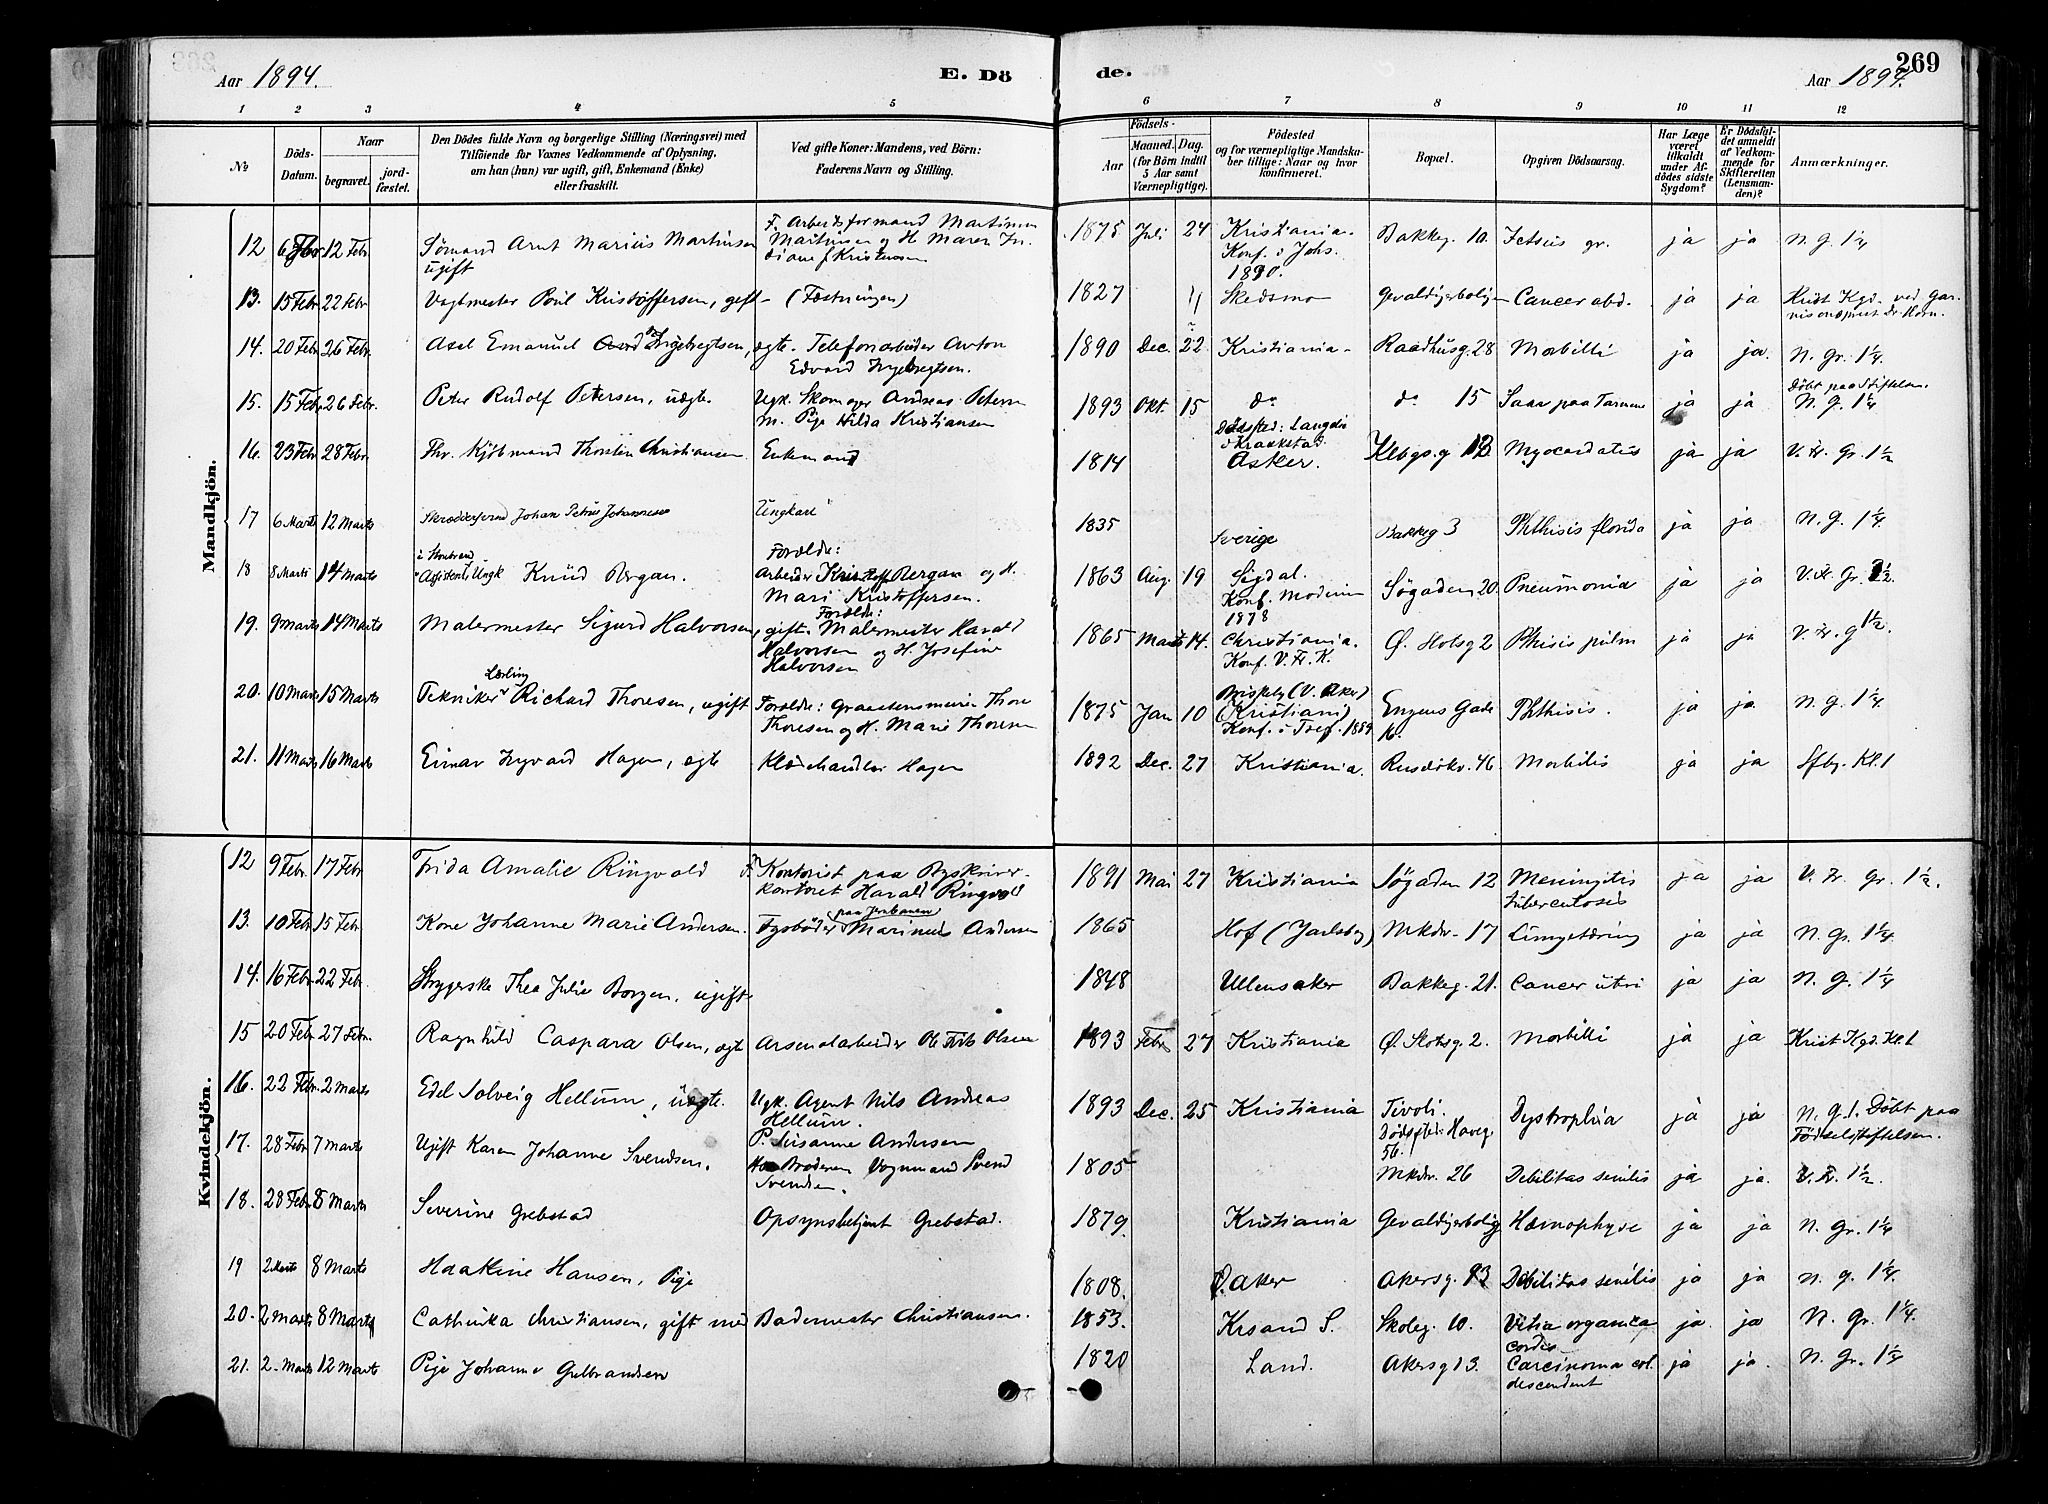 Aar 1894.
E. Dö
de.
269
Aar 1894.
1 2 3 4 5 6 7 8 9 10 11 12
No
Döds-Datum.
Naar
begravet.
jordfæstet.
Den Dödes fulde Navn og borgerlige Stilling (Næringsvei) med
Tilföiende for Voxnes Vedkommende af Oplysning,
om han (hun) var ugift, gift, Enkemand (Enke)
eller fraskilt.
Ved gifte Koner: Mandens, ved Börn:
Faderens Navn og Stilling.
Födsels-
Aar
Maaned. Dag.
(for Börn indtil
5 Aar samt
Værnepligtige).
Födested
og for værnepligtige Mandska-
ber tillige: Naar og hvor
konfirmeret.
Bopæl.
Opgiven Dödsaarsag.
Har Læge
været
tilkaldt
under Af-
dödes sidste
Sygdom?
Er Dödsfal-
det anmeldt
af Vedkom-
mende for
Skifteretten
(Lensman-
den)?
Anmærkninger.
Mandkjön.
12 6 Febr 12 Febr. Sømand Arnt Marius Martinsen ugift F. Arbeidsformand Martinus Martinsen og H. Maren 1875 Juli 24 Kristiania. Konf. i Johs. 1890. Bakkeg. 10. gr. ja ja N. G. 1 1/4
13. 15 Febr 22 Febr Vagtmester Poul Kristoffersen, gift (Fæstningen) 1827 Skedsmo Gevaldigerbolig Cancer abd. ja ja Krist Kgd. ved Garnisonspræst Dr Horn.
14. 20 Febr 26 Febr. Axel Emanuel Ingebregtsen, ægte. Telefonarbeider Anton Edvard Ingebregtsen. 1890 Dec. 22 Kristiania Raadhusg. 28 Morbilli ja ja. N. Gr. 1 1/4.
15. 15 Febr 26 Febr. Peter Rudolf Petersen, uægte. Ugk. Skomager Andreas Petersen M. Pige Hilda Kristiansen 1893 Okt. 15 do Dødssted: Kraakstad. do 15 Saar paa Tarmene ja ja Døbt paa Stiftelsen. N. G. 1 1/4
16. 23 Febr 28 Febr. Fhv. Kjøbmand Thorstein Christiansen Enkemand 1814 Asker. 12 Myocarditis ja ja V. Fr. Gr. 1 1/2
17 6 Marts 12 Marts Skræddersvend Johan Petrus Johannesen Ungkarl 1835 Sverige Bakkeg 3 Phthisis florida ja ja N. G. 1 1/4.
18 8 Marts 14 Marts Assistent Ungk Knud Bergan. Forældre: Arbeider Kristoffer Bergan og H. Mari Kristoffersen. 1863 Aug. 19 Sigdal. Konf. Modum 1878 Søgaden 20. Pneumonia ja ja V. Fr. Gr. 1 1/2.
19. 9 Marts 14 Marts Malermester Sigurd Halvorsen, gift. Forældre: Malermester Harald Halvorsen og H. Josefine Halvorsen 1865 Marts 14. Christiania. Konf. V. Fr. K. Ø. Slotsg 2 Phthisis pulm ja ja V. Fr. g 1 1/2.
20. 10 Marts 15 Marts Tekniker Lærling Richard Thoresen, ugift Forældre: Thore Thoresen og H. Marie Thoresen 1875 Jan 10 (V. Aker) (Kristiania) Konf. i Tref. 1889 Engens Gade 16. Phthisis. ja ja N. G. 1 1/4
21. 11 Marts 16 Marts Einar Ingvard Hagen, ægte Hagen 1892 Dec. 27 Kristiania. Rusløkv. 46 Morbilis ja ja Sfbg. Kl. 1
Kvindekjön.
12 9 Febr. 17 Febr Frida Amalie Ringvold F. Kontorist paa Byskriverkontoret Harald Ringvold 1891 Mai 27 Kristiania Søgaden 12 Meningitis tuberculosis ja ja V. Fr. Gr. 1 1/2.
13. 10 Febr 15 Febr. Kone Johanne Marie Andersen. Fyrbøder paa Jernbanen Marinius Andersen 1865 Hof (Jarlsberg) Mrkdv. 17 Lungetæring ja ja N. Gr. 1 1/4
14. 16 Febr. 22 Febr. Strygerske Thea Julie Borgen, ugift 1848 Ullensaker Bakkeg. 21. Cancer uteri ja ja N. G. 1 1/4
15 20 Febr. 27 Febr. Ragnhild Caspara Olsen, ægte Arsenalarbeider Olsen 1893 Febr 27 Kristiania Ø. Slotsg 2. Morbilli ja ja Krist Kgd. Kl. 1
16. 22 Febr. 2 Marts Edel Solveig Hellum, uægte. Ugk. Agent Nils Andreas Hellum. P. Susanne Andersen 1893 Dec. 25 Kristiania Tivoli. Dødssted: Haveg. 56. Dystrophia ja ja N. G. 1. Døbt paa Fødselsstiftelsen.
17. 28 Febr 7 Marts Ugift Karen Johanne Svendsen. Broderen Vognmand Svend Svendsen. 1805 Mrkdv. 26 Debilitas senilis ja ja. V. Fr. 1 1/2.
18. 28 Febr 8 Marts Severine Grebstad Opsynsbetjent Grebstad. 1879. Kristiania Gevaldigerbolig Hæmophyse ja ja N. Gr. 1 1/4
19 2 Marts 8 Marts Haakine Hansen, Pige 1808. Ø. Aker Akersg. 13 Debilitas senilis ja ja N. G. 1 1/4.
20. 2 Marts 8 Marts Cathinka Christiansen, gift med Bademester Christiansen. 1853. Krsand S. Skoleg. 10. Vitia organica cordis ja ja N. Gr. 1 1/4.
21. 2. Marts 12 Marts Pige Johanne Gulbrandsen 1820 Land. Akersg 13. Carcinoma col. descendent ja ja. N. Gr. 1 1/4